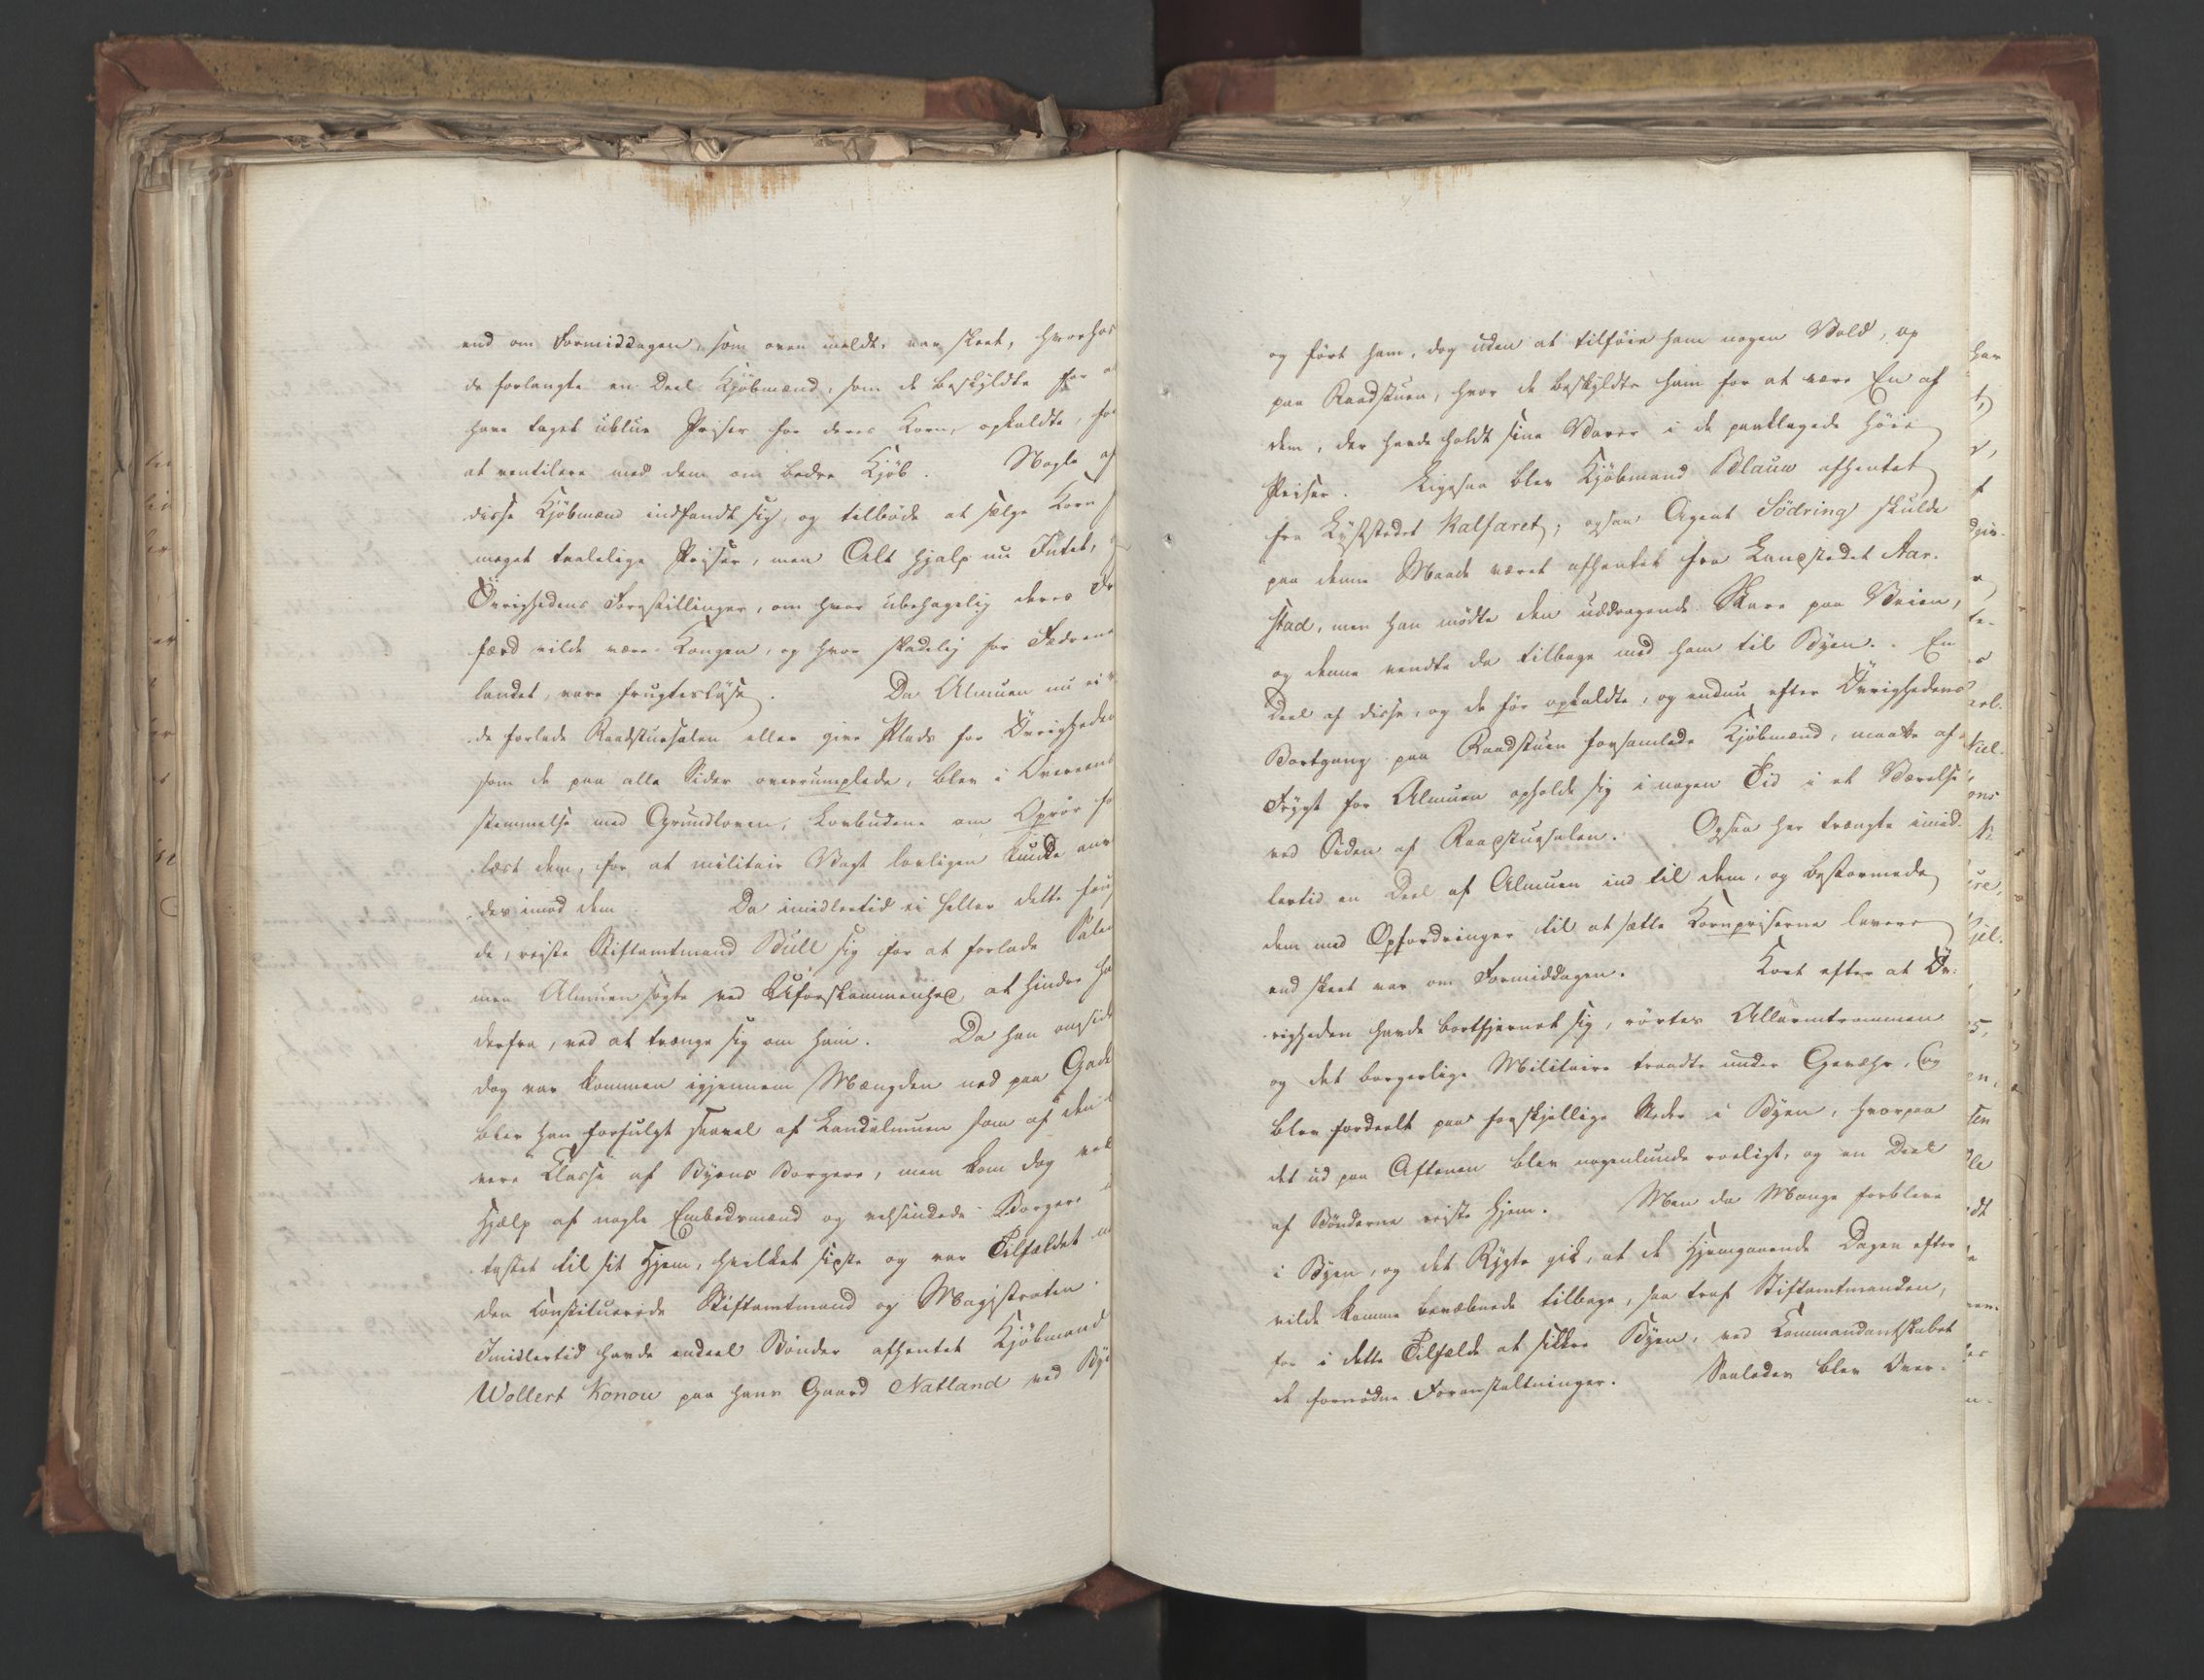 end om Formiddagen, som oven meldt, var skeet, hvorhos
de forlangte en Deel Kjöbmænd, som de beskyldte for a
have taget ublue Priser for deres Korn, opkaldte, for
at ventilere med dem om bedre Kjöb. Nogle af
disse Kjöbmænd indfandt sig, og tilböde at sælge Korn
meget taalelige Priser, men Alt hjalp nu Intet,
Övrighedens Forestillinger, om hvor ubehagelig deres
færd vilde være Kongen, og hvor skadelig for Fædrene
landet, vare frugteslöse. Da Almuen nu ei
de forlade Raadstuesalen eller give Plads for Övrigheden
som de paa alle Sider overrumplede, blev i Overeens
stemmelse med Grundloven, Lovbudene om Oprör fo
læst dem, for at militair Magt lovligen kunde anv
des imod dem. Da imidlertid ei heller dette fru
de, reiste Stiftamtmand Bull sig for at forlade Salen
men Almuen sögte ved Uforskammenhed, at hindre ha
derfra, ved at trænge sig om ham. Da han omsider
dog var kommen igjennem Mængden ned paa Gade
blev han forfulgt saavel af Landalmuen som af den
vere Classe af Byens Borgere, men kom dog ved
Hjælp af nogle Embedsmænd og velsindede Borgere
tastet til sit Hjem, hvilket sidste og var Tilfældet
den constituerede Stiftamtmand og Magistraten.
Imidlertid havde endeel Bönder afhentet Kjöbmand
Wollert Konow paa hans Gaard Natland ved By
og fört ham, dog uden at tilföie ham nogen Vold, op
paa Raadstuen, hvor de beskyldte ham for at være En af
dem, der havde holdt sine Varer i de paaklagede höie
Priser. Ligesaa blev Kjöbmand Blauw afhentet
fra Lyststedet Kalfaret; ogsaa Agent Södring skulde
paa denne Maade været afhentet fra Landstedet Aar-
stad, men han mödte den uddragende Skare paa Veien,
og denne vendte da tilbage med ham til Byen. En
Deel af disse, og de för opkaldte, og endnu efter Övrighedens
Bortgang paa Raadstuen forsamlede Kjöbmænd, maatte af
Frygt for Almuen opholde sig i nogen Tid i et Værelse
ved Siden af Raadstuesalen. Ogsaa her trængte imid-
lertid en Deel af Almuen ind til dem, og bestormede
dem med Opfordringer til at sætte Kornpriserne lavere
end skeet var om Formiddagen. Kort efter at Öv-
righeden havde bortfjernet sig, rörtes Allarmtrommen
og det borgerlige Militaire traadte under Gevæhr, og
blev fordeelt paa forskjellige Steder i Byen, hvorpaa
det ud paa Aftenen blev nogenlunde roeligt, og en Deel
af Bönderne reiste hjem. Men da Mange forbleve
i Byen, og det Rygte gik, at de Hjemgaaende Dagen efter
vilde komme bevæbnede tilbage, saa traf Stiftamtmanden,
for i dette Tilfælde at sikkre Byen, ved Commandantskabet
de fornödne Foranstaltninger. Saaledes blev Over-